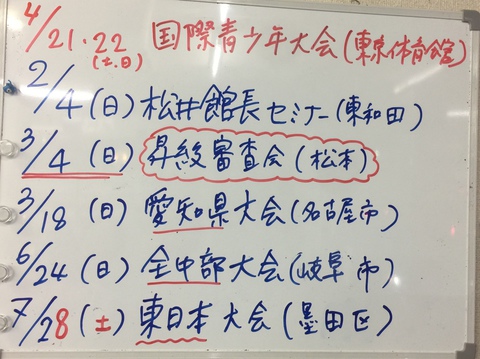 4/21・22 (土.日) 国際青少年大会(東京体育館)
2/4(日)松井館長セミナー(東和田)
3/4(日)昇級審査会(松本)
3/18(日)愛知県大会(名古屋市)
6/24(日)全中部大会(岐阜市)
7/28(土)東日本大会(墨田区)